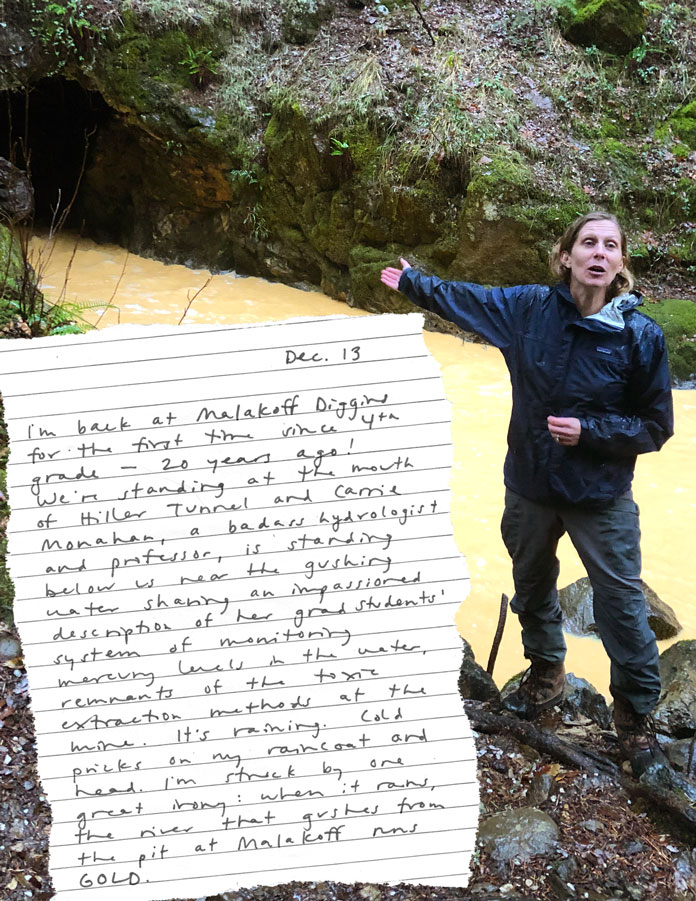 Dec. 13
I'm back at Malakoff Diggins
for the first time since 4th
grade – 20 years ago!
We're standing at the mouth
of Hiller Tunnel and Carrie
Monahan, a badass hydrologist
and professor, is standing
below us near the gushing
water sharing an impassioned
description of her grad students'
system of monitoring
mercury levels in the water,
remnants of the toxic
extraction methods at the
mine. It's raining. Cold
pricks on my raincoat and
head. I'm struck by one
great irony: when it rains,
the river that gushes from
the pit at Malakoff runs
GOLD.